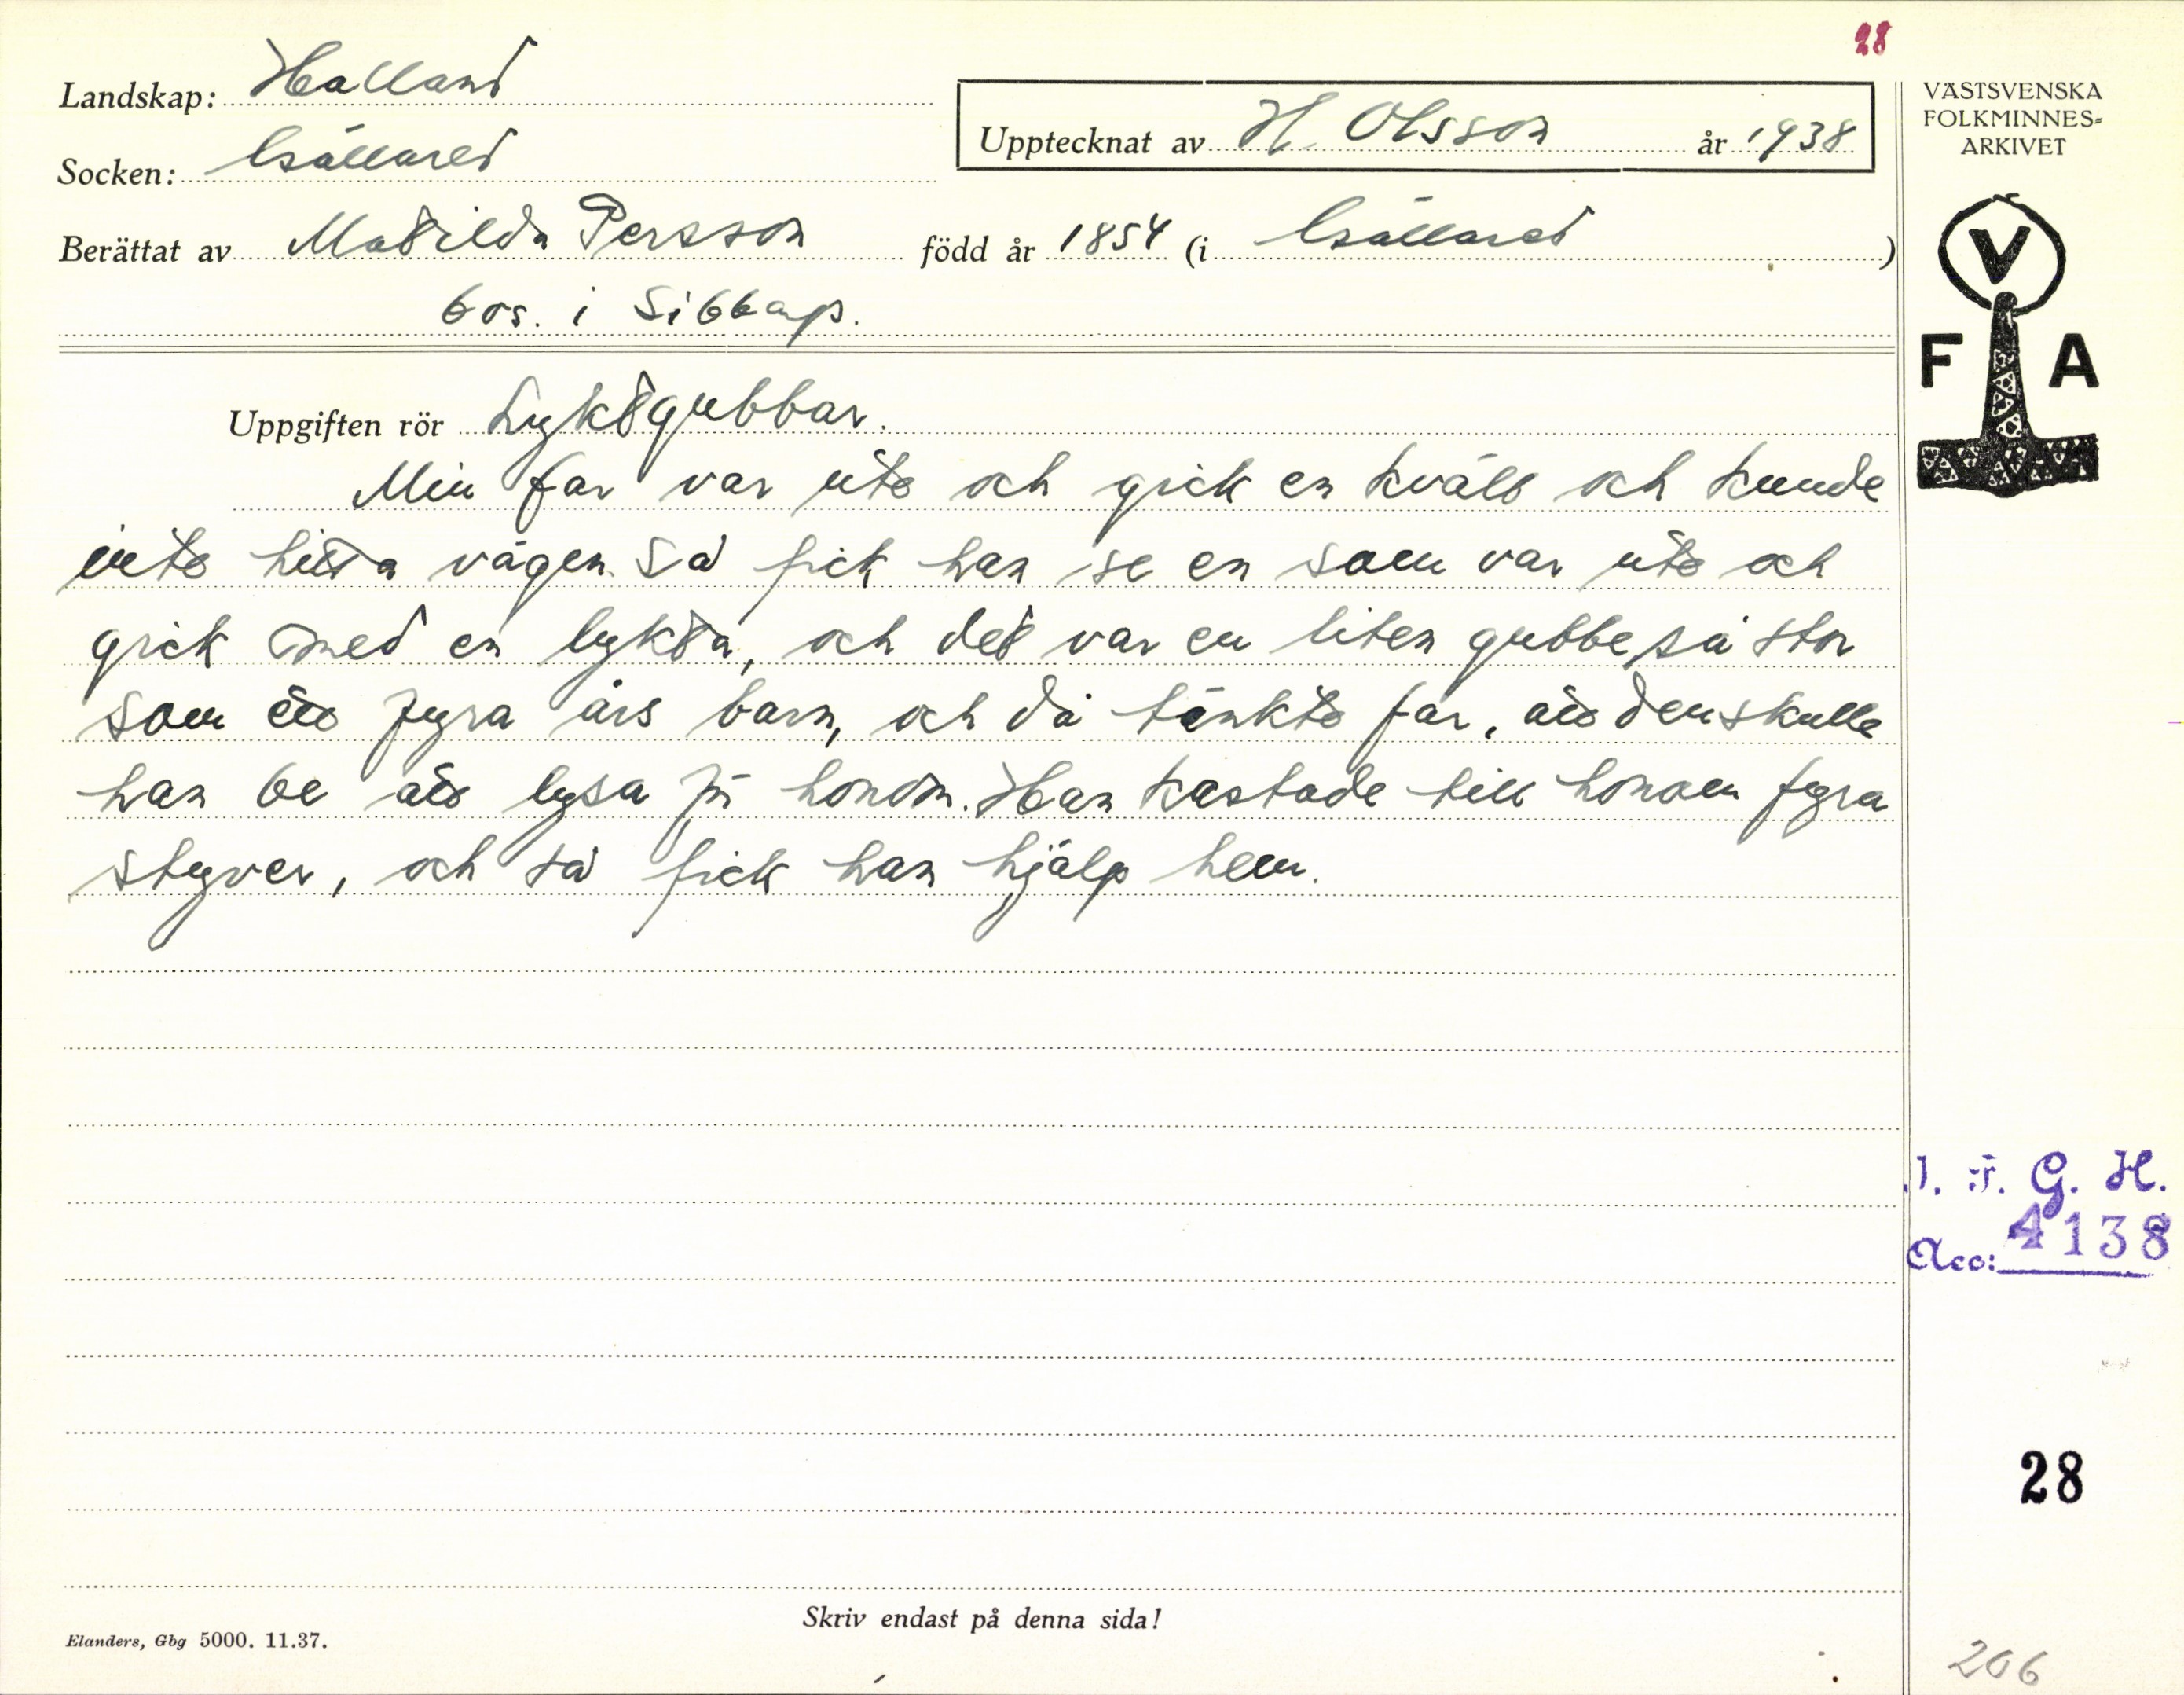 28
Landskap: Halland
Socken: Källared
Upptecknat av H. Olsson år 1938
VÄSTSVENSKA
FOLKMINNES-
ARKIVET
Berättat av Matilda Persson född år 1854 (i Källared)
bos. i Sibbarp.
V
F A
Uppgiften rör Lyktgubbar.
Min far var ute och gick en kväll och kunde
inte hitta vägen. Så fick han se en som var ute och
gick med en lykta, och det var en liten gubbe, så stor
som ett fyra års barn, och då tänkte far, att den skulle
han be att lysa på honom. Han kastade till honom fyra
styver, och så fick han hjälp hem.
J. F. G. H.
Acc: 4138
28
Skriv endast på denna sida!
Elanders, Gbg 5000. 11.37.
206